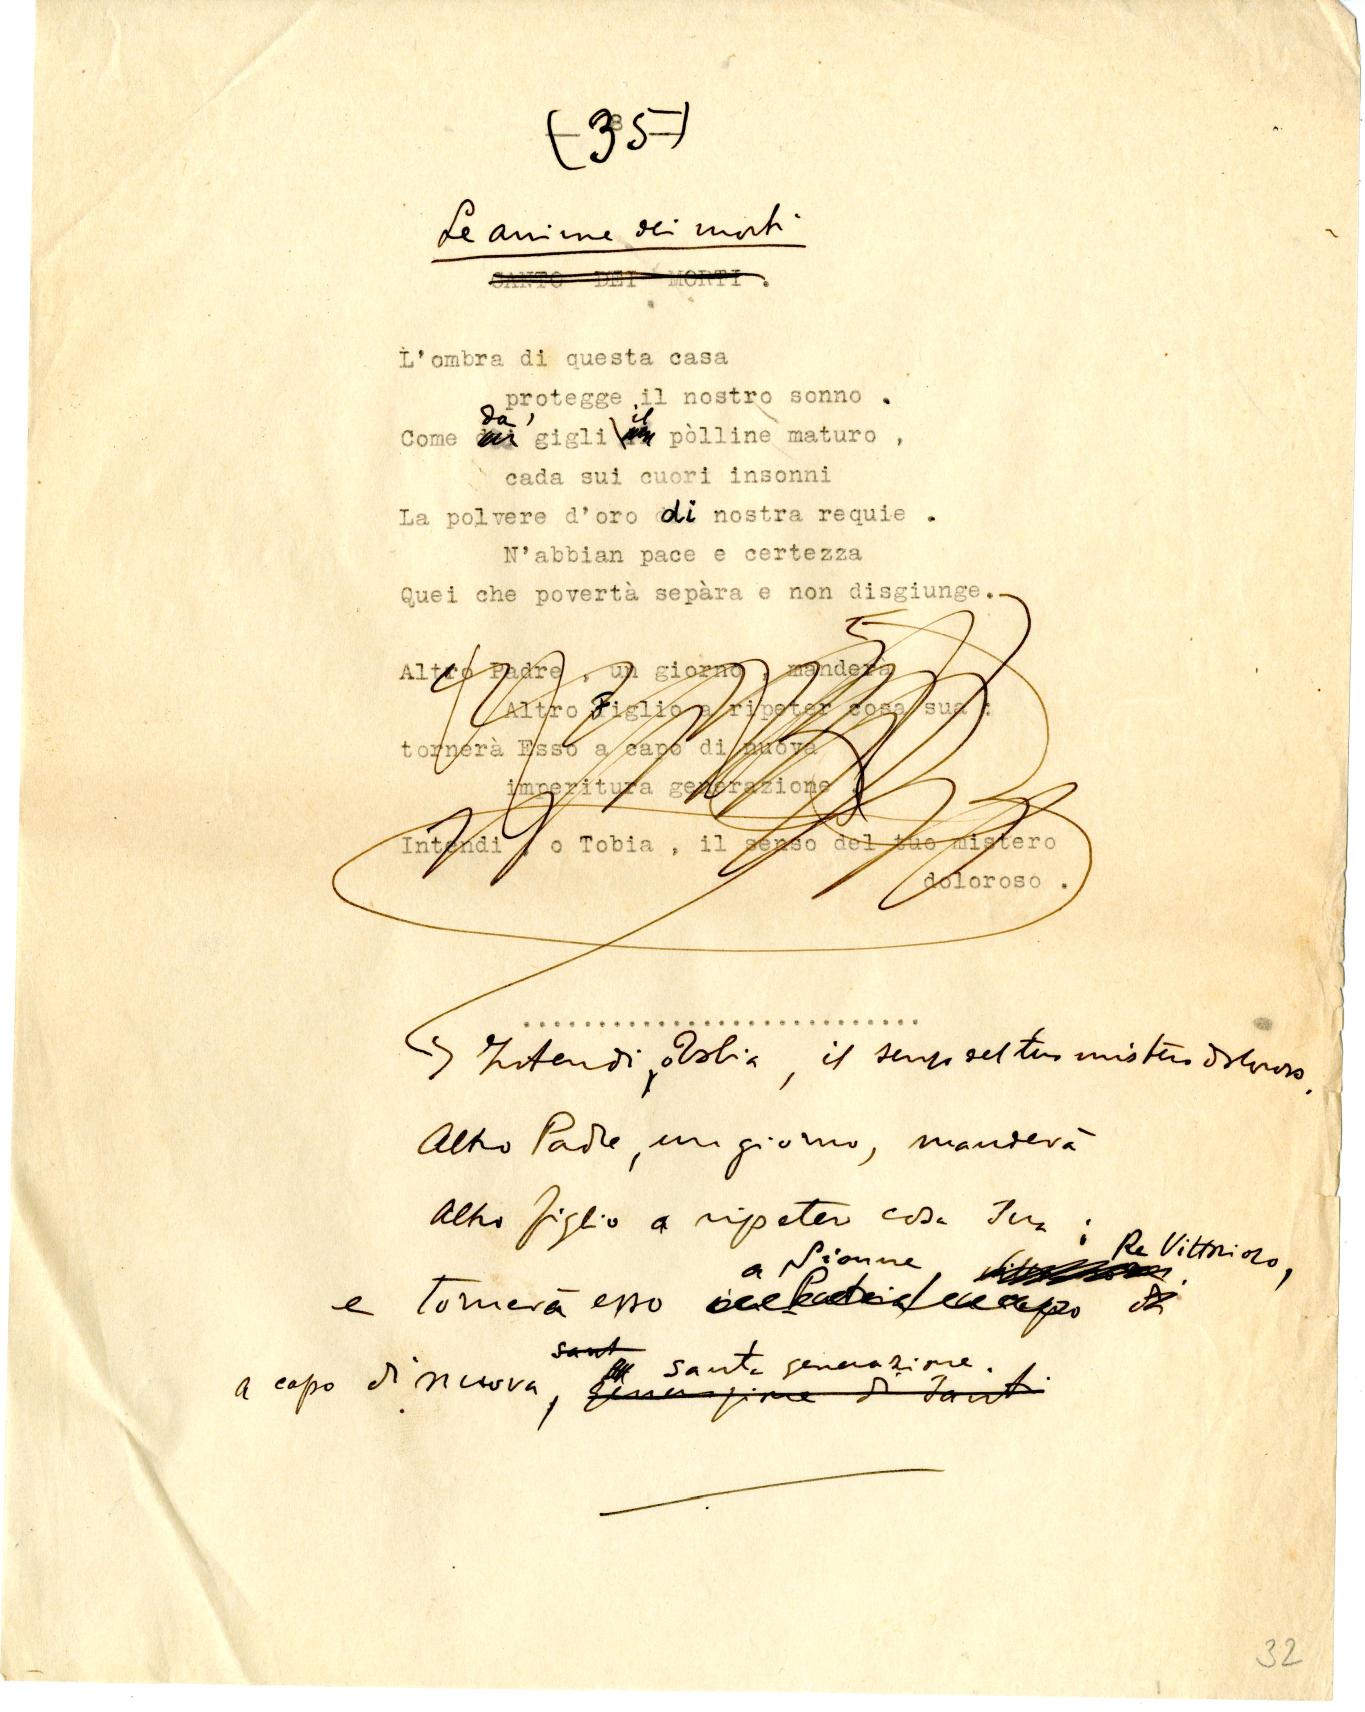 (-35-)
Le anime dei morti
CANTO DEI MORTI .
L'ombra di questa casa
protegge il nostro sonno .
da' il
Come gigli pòlline maturo ,
cada sui cuori insonni
La polvere d'oro di nostra requie .
N'abbian pace e certezza
Quei che povertà sepàra e non disgiunge.
Altro Padre , un giorno , manderà
Altro Figlio a ripeter cosa sua :
tornerà Esso a capo di nuova
imperitura generazione .
Intendi , o Tobia , il senso del tuo mistero
doloroso .
..............................
Intendi, o Tobia, il senso del tuo mistero doloroso.
Altro Padre, un giorno, manderà
Altro figlio a ripeter cosa Sua :
a Sionne Re Vittorioso,
e tornerà esso nella Patria / a capo di
sant
santa generazione.
a capo di nuova, generazione di Santi
32